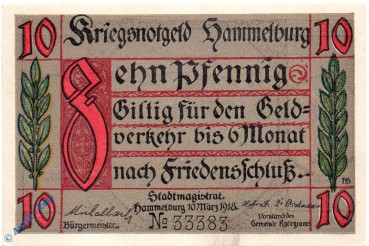 10 Kriegsnotgeld Hammelburg 10
Zehn Pfennig
Giltig für den Geld=
verkehr bis 6 Monat
nach Friedensschluß.
Stadtmagistrat.
Hammelburg 10. März 1918.
No 33383
Bürgermeister. Vorstand des
Gemeinde Kollegiums
10 10